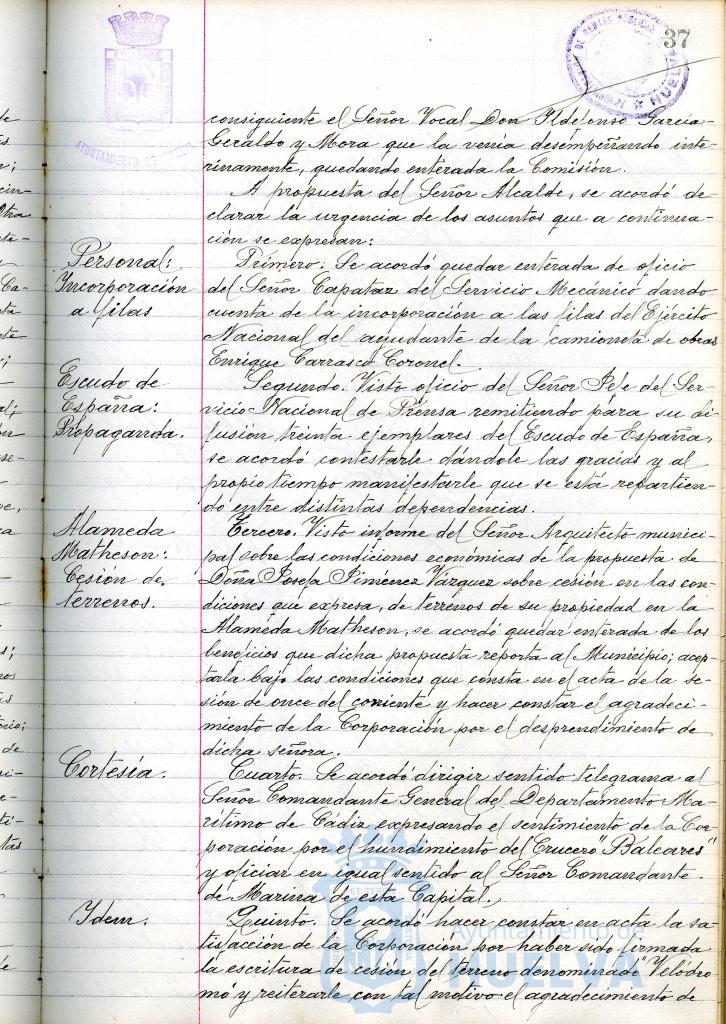 37
consiguiente el Señor Vocal Don Ildefonso García-
Geraldo y Mora que la venía desempeñando inte-
rinamente, quedando enterada la Comisión.
A propuesta del Señor Alcalde, se acordó de-
clarar la urgencia de los asuntos que a continua-
ción se expresan:
Personal:
Incorporación
a filas
Primero. Se acordó quedar enterada de oficio
del Señor Capataz del Servicio Mecánico dando
cuenta de la incorporación a las filas del Ejército
Nacional del ayudante de la camioneta de obras
Enrique Carrasco Coronel.
Escudo de
España:
Propaganda.
Segundo. Visto oficio del Señor Jefe del Ser-
vicio Nacional de Prensa remitiendo para su di-
fusión treinta ejemplares del Escudo de España,
se acordó contestarle dándole las gracias y al
propio tiempo manifestarle que se está repartien-
do entre distintas dependencias.
Alameda
Matheson:
Cesión de
terrenos.
Tercero. Visto informe del Señor Arquitecto munici-
pal sobre las condiciones económicas de la propuesta de
Doña Josefa Jiménez Vázquez sobre cesión en las con-
diciones que expresa, de terrenos de su propiedad en la
Alameda Matheson, se acordó quedar enterada de los
beneficios que dicha propuesta reporta al Municipio; acep-
tarla bajo las condiciones que consta en el acta de la se-
sión de once del corriente y hacer constar el agradeci-
miento de la Corporación por el desprendimiento de
dicha señora.
Cortesía.
Cuarto. Se acordó dirigir sentido telegrama al
Señor Comandante General del Departamento Ma-
rítimo de Cádiz expresando el sentimiento de la Cor-
poración por el hundimiento del Crucero "Baleares"
y oficiar en igual sentido al Señor Comandante
de Marina de esta Capital.
Idem.
Quinto. Se acordó hacer constar en acta la sa-
tisfacción de la Corporación por haber sido firmada
la escritura de cesión del terreno denominado "Velódro-
mo" y reiterarle con tal motivo el agradecimiento de
Ayuntamiento de
HUELVA